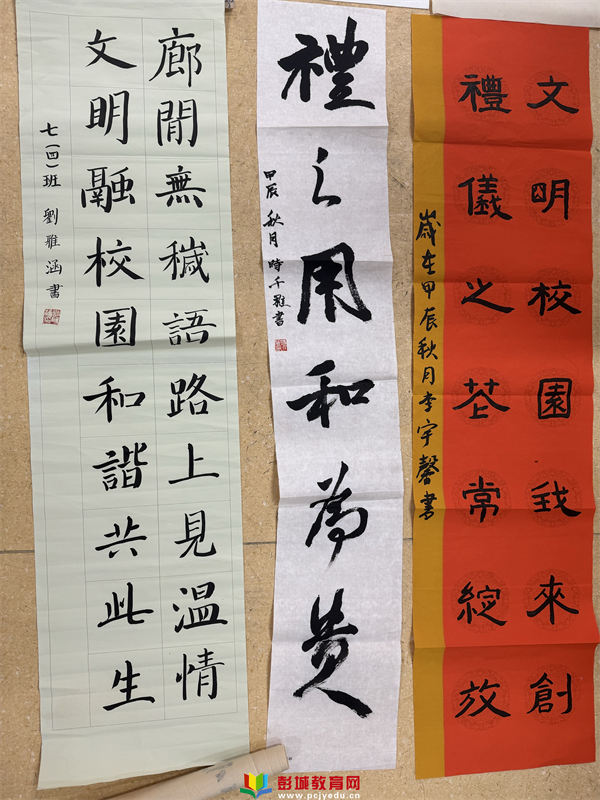 廊閒無穢語路上見温情
文明融校園和諧共此生
七(四)班 劉雅涵書
禮之用和為貴
甲辰秋月 時千雅書
文明校園我來創
禮儀之花常綻放
歲在甲辰秋月李宇馨書
彭城教育网
www.pcjyedu.cn